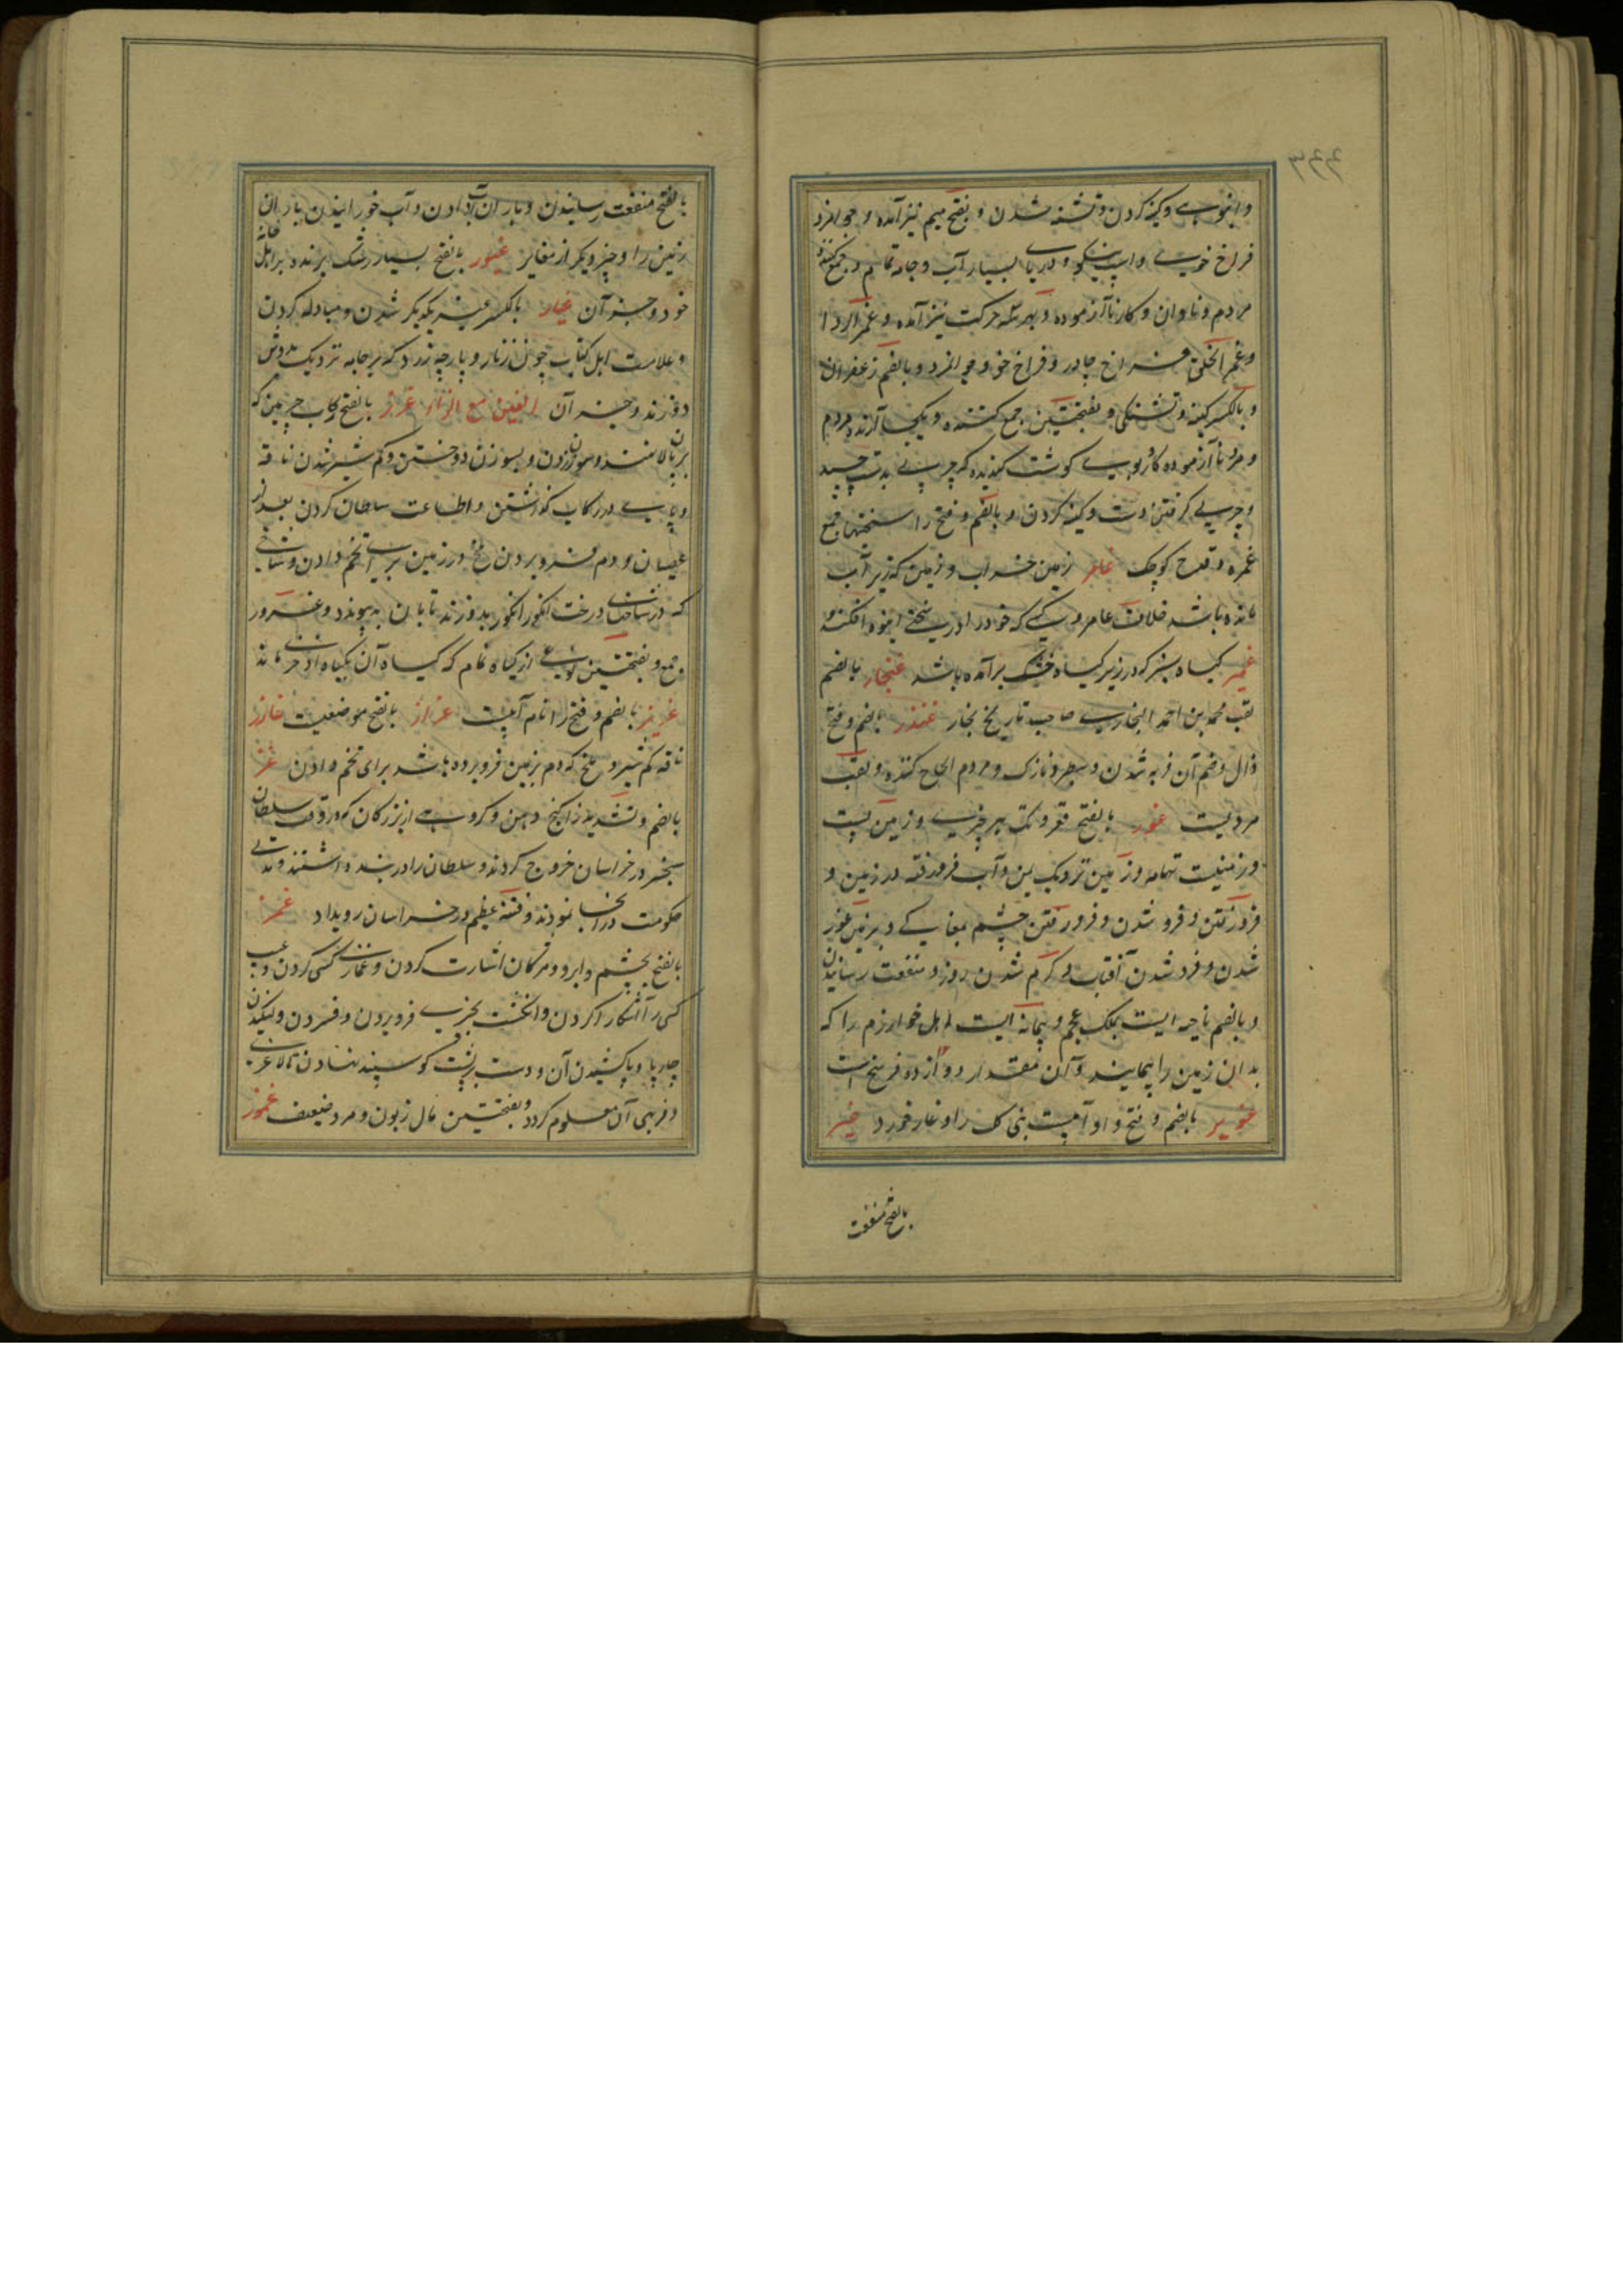 وانبوهی وکینه کردن وتشنه شدن و بفتح میم نیز آمده و جوانمرد
فراخ خوی واسب نیکو و دریای بسیار آب و جامه تمام و جمع کننده
مردم و نادان و کار ناآزموده و بهرسه حرکت نیز آمده و غمر الردا
و غمر الخلق فراخ چادر و فراخ خو و جوانمرد و بالضم زعفران
و بالکسر کینه و تشنگی و بفتحتین جمع کننده و یکجا آرنده مردم
و مرد ناآزموده کار و بوی گوشت گندیده که چربی بدست چسپد
و چربی گرفتن دست و کینه کردن و بالضم و فتح را سختیها جمع
غمره و قدح کوچک غامر زمین خراب و زمین که زیر آب
مانده باشد خلاف عامر و کسی که خود را در سختی انبوه افکند
غمیر گیاه سبز که در زیر گیاه خشک برآمده باشد غنجار بالضم
لقب محمد بن احمد البخاری صاحب تاریخ بخار غندر بالضم و فتح
دال و ضم آن فربه شدن و سطبر و نازک و مردم الحاح کننده و لقب
مردیست غور بالفتح قعر و تک هر چیزی و زمین پست
و زمینیست تهامه و زمین نزدیک یمن و آب فرو رفته در زمین و
فرو رفتن و فرو شدن و فرو رفتن چشم بمغاکی و بزمین غور
شدن و فرو شدن آفتاب و گرم شدن روز و منفعت رسانیدن
و بالضم ناحیه ایست بملک عجم و پیمانه ایست اهل خوارزم را که
بدان زمین را پیمایند و آن مقدار دوازده فرسخ است
غویر بالضم و فتح واو آبیست بنی کلب را و غار خورد غیر
بالفتح منفعت
بالفتح منفعت رسانیدن و باران آب دادن و آب خورانیدن باران
زمین را و چیز دیگر از مغایر غیور بالفتح بسیار رشک برنده بر اهل خانه
خود و جز آن غیار بالکسر غیر یکدیگر شدن و مبادله کردن
و علامت اهل کتاب چون زنار و پارچه زرد که بر جامه نزدیک بدوش
دوزند و جز آن الغین مع الزاء غرز بالفتح رکاب چرمین که
بر پالان بندند و سوزن زدن و بسوزن دوختن و کم شیر شدن ناقه
و پای در رکاب گذاشتن و اطاعت سلطان کردن بعد از
عصیان و دم فرو بردن ملخ در زمین برای تخم دادن و شاخی
که در شاخهای درخت انگور انگور بدوزند تا بآن بپیوندد و غروز
جمع و بفتحتین نوعی از گیاه ثمام که گیاه آن بگیاه اذخر ماند
غریز بالضم و فتح را نام آبیست غراز بالفتح موضعیست غارز
ناقه کم شیر و ملخ که دم بزمین فرو برده باشد برای تخم دادن غز
بالضم و تشدید زا کنج دهن و گروهی از ترکان که در وقت سلطان
سنجر در خراسان خروج کردند و سلطان را در بند داشتند و مدتی
حکومت در آنجا نمودند و فتنه عظیم در خراسان رویداد غمز
بالفتح بچشم و ابرو و مژگان اشارت کردن و غمازی کسی کردن و عیب
کسی را آشکارا کردن و انگشت بچیزی فرو بردن و فشردن و لنگیدن
چارپا و پا کشیدن آن و دست بر پشت گوسپند نهادن تا لاغری
و فربهی آن معلوم گردد و بفتحتین مال زبون و مرد ضعیف غموز